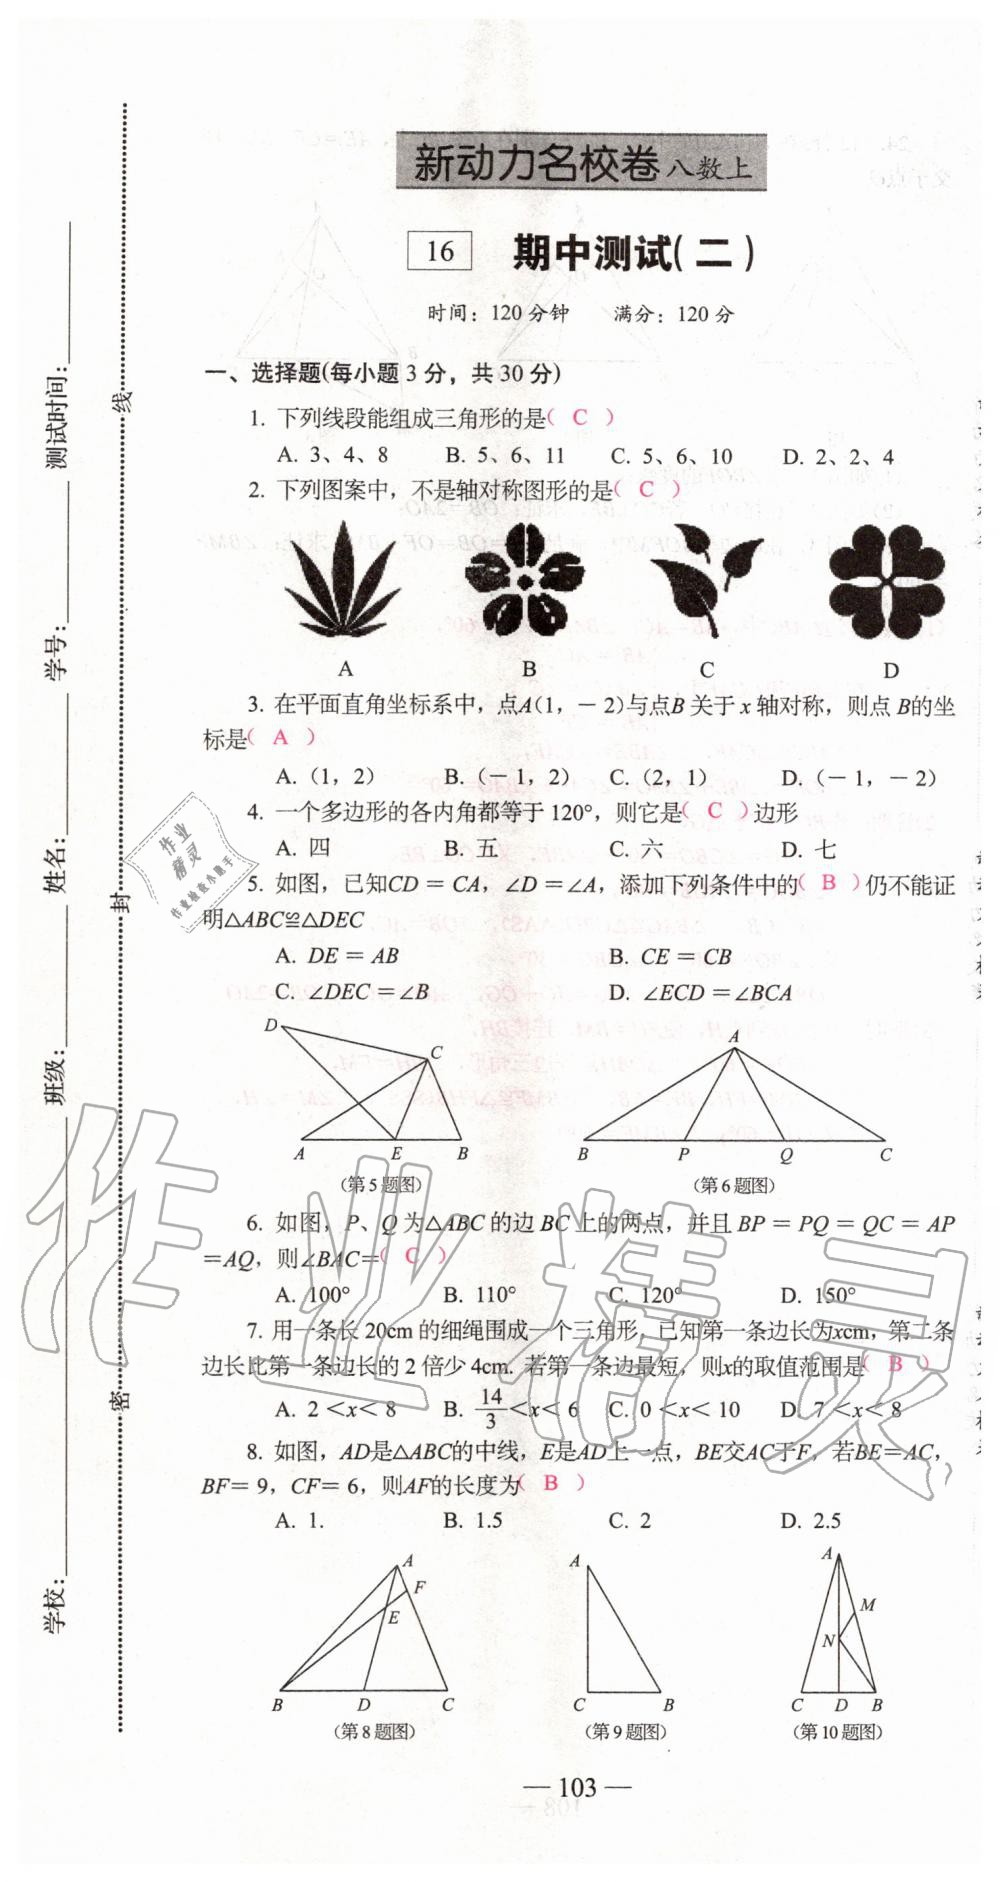 新动力名校卷 八数上
16 期中测试(二)
时间：120分钟 满分：120分
一、选择题(每小题3分，共30分)
1. 下列线段能组成三角形的是( C )
A. 3、4、8 B. 5、6、11 C. 5、6、10 D. 2、2、4
2. 下列图案中，不是轴对称图形的是( C )
A B C D
3. 在平面直角坐标系中，点A(1，－2)与点B关于x轴对称，则点B的坐
标是( A )
A.（1，2） B.（－1，2） C.（2，1） D.（－1，－2）
4. 一个多边形的各内角都等于120°，则它是( C )边形
A. 四 B. 五 C. 六 D. 七
5. 如图，已知CD＝CA，∠D＝∠A，添加下列条件中的( B )仍不能证
明△ABC≌△DEC
A. DE＝AB B. CE＝CB
C. ∠DEC＝∠B D. ∠ECD＝∠BCA
D C A E B
(第5题图)
A B P Q C
(第6题图)
6. 如图，P、Q为△ABC的边BC上的两点，并且BP＝PQ＝QC＝AP
＝AQ，则∠BAC＝( C )
A. 100° B. 110° C. 120° D. 150°
7. 用一条长20cm的细绳围成一个三角形，已知第一条边长为xcm，第二条
边长比第一条边长的2倍少4cm. 若第一条边最短，则x的取值范围是( B )
A. 2＜x＜8 B. 14/3＜x＜6 C. 0＜x＜10 D. 7＜x＜8
8. 如图，AD是△ABC的中线，E是AD上一点，BE交AC于F，若BE＝AC，
BF＝9，CF＝6，则AF的长度为( B )
A. 1. B. 1.5 C. 2 D. 2.5
A F E B D C
(第8题图)
A C B
(第9题图)
A M N C D B
(第10题图)
— 103 —
学校： 班级： 姓名： 学号： 测试时间：
密 封 线
作业精灵
作业
精灵
作业检查小助手